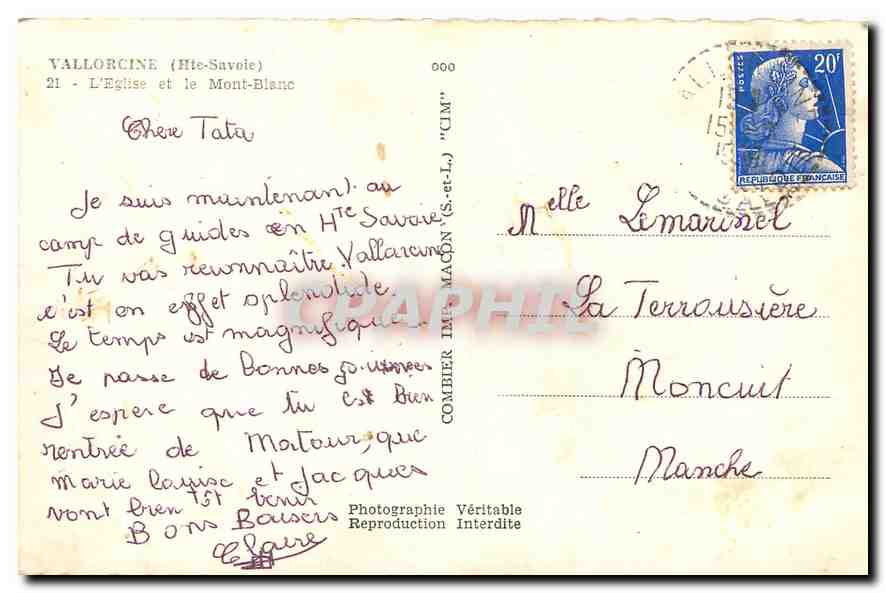 VALLORCINE (Hte-Savoie)
21 - L'Eglise et le Mont-Blanc
Chère Tata
Je suis maintenant au
camp de guides en Hte Savoie
Tu vas reconnaître Vallorcine
c'est en effet splendide
Le temps est magnifique
Je passe de bonnes journées
J'espere que tu est bien
rentrée de Matour, que
Marie Louise et Jacques
vont bien tôt venir
Bons Baisers
Claire
000
COMBIER IMP. MACON (S.-et-L.) "CIM"
Photographie Véritable
Reproduction Interdite
POSTES
20F
REPUBLIQUE FRANCAISE
Melle Lemarinel
La Terrousière
Moncuit
Manche
CPAPHIL